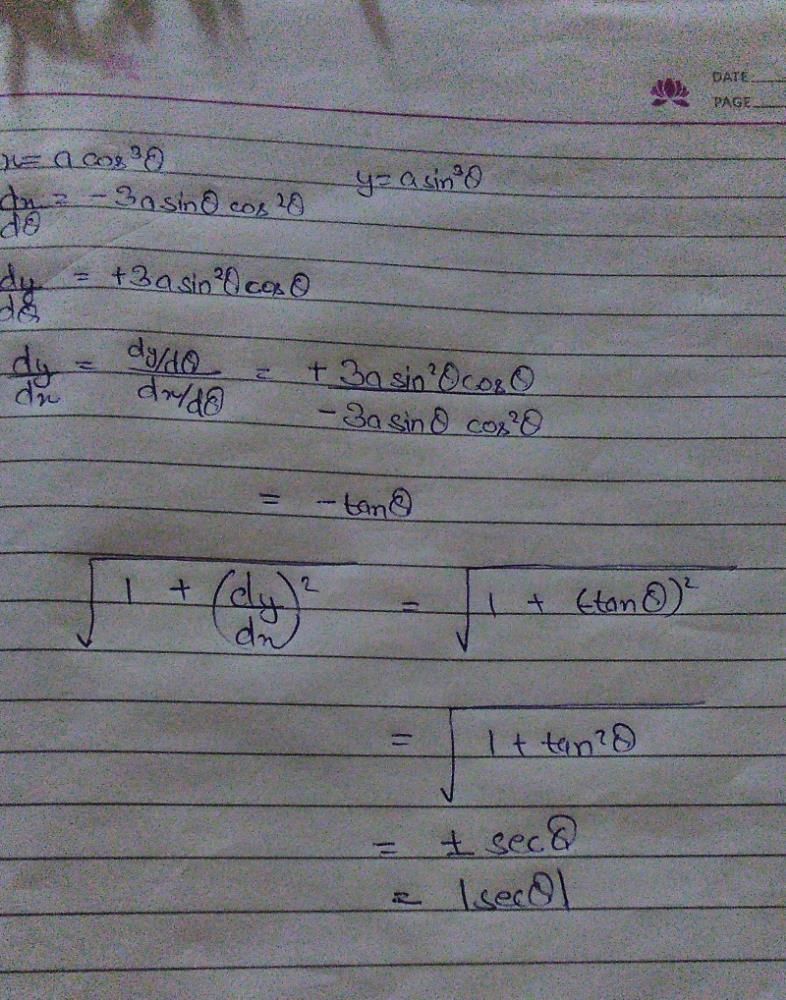 DATE
PAGE
x = a cos³θ y = a sin³θ
dx/dθ = - 3a sinθ cos²θ
dy/dθ = + 3a sin²θ cosθ
dy/dx = (dy/dθ)/(dx/dθ) = (+ 3a sin²θ cosθ)/(- 3a sinθ cos²θ)
= - tanθ
√(1 + (dy/dx)²) = √(1 + (-tanθ)²)
= √(1 + tan²θ)
= ± secθ
= |secθ|